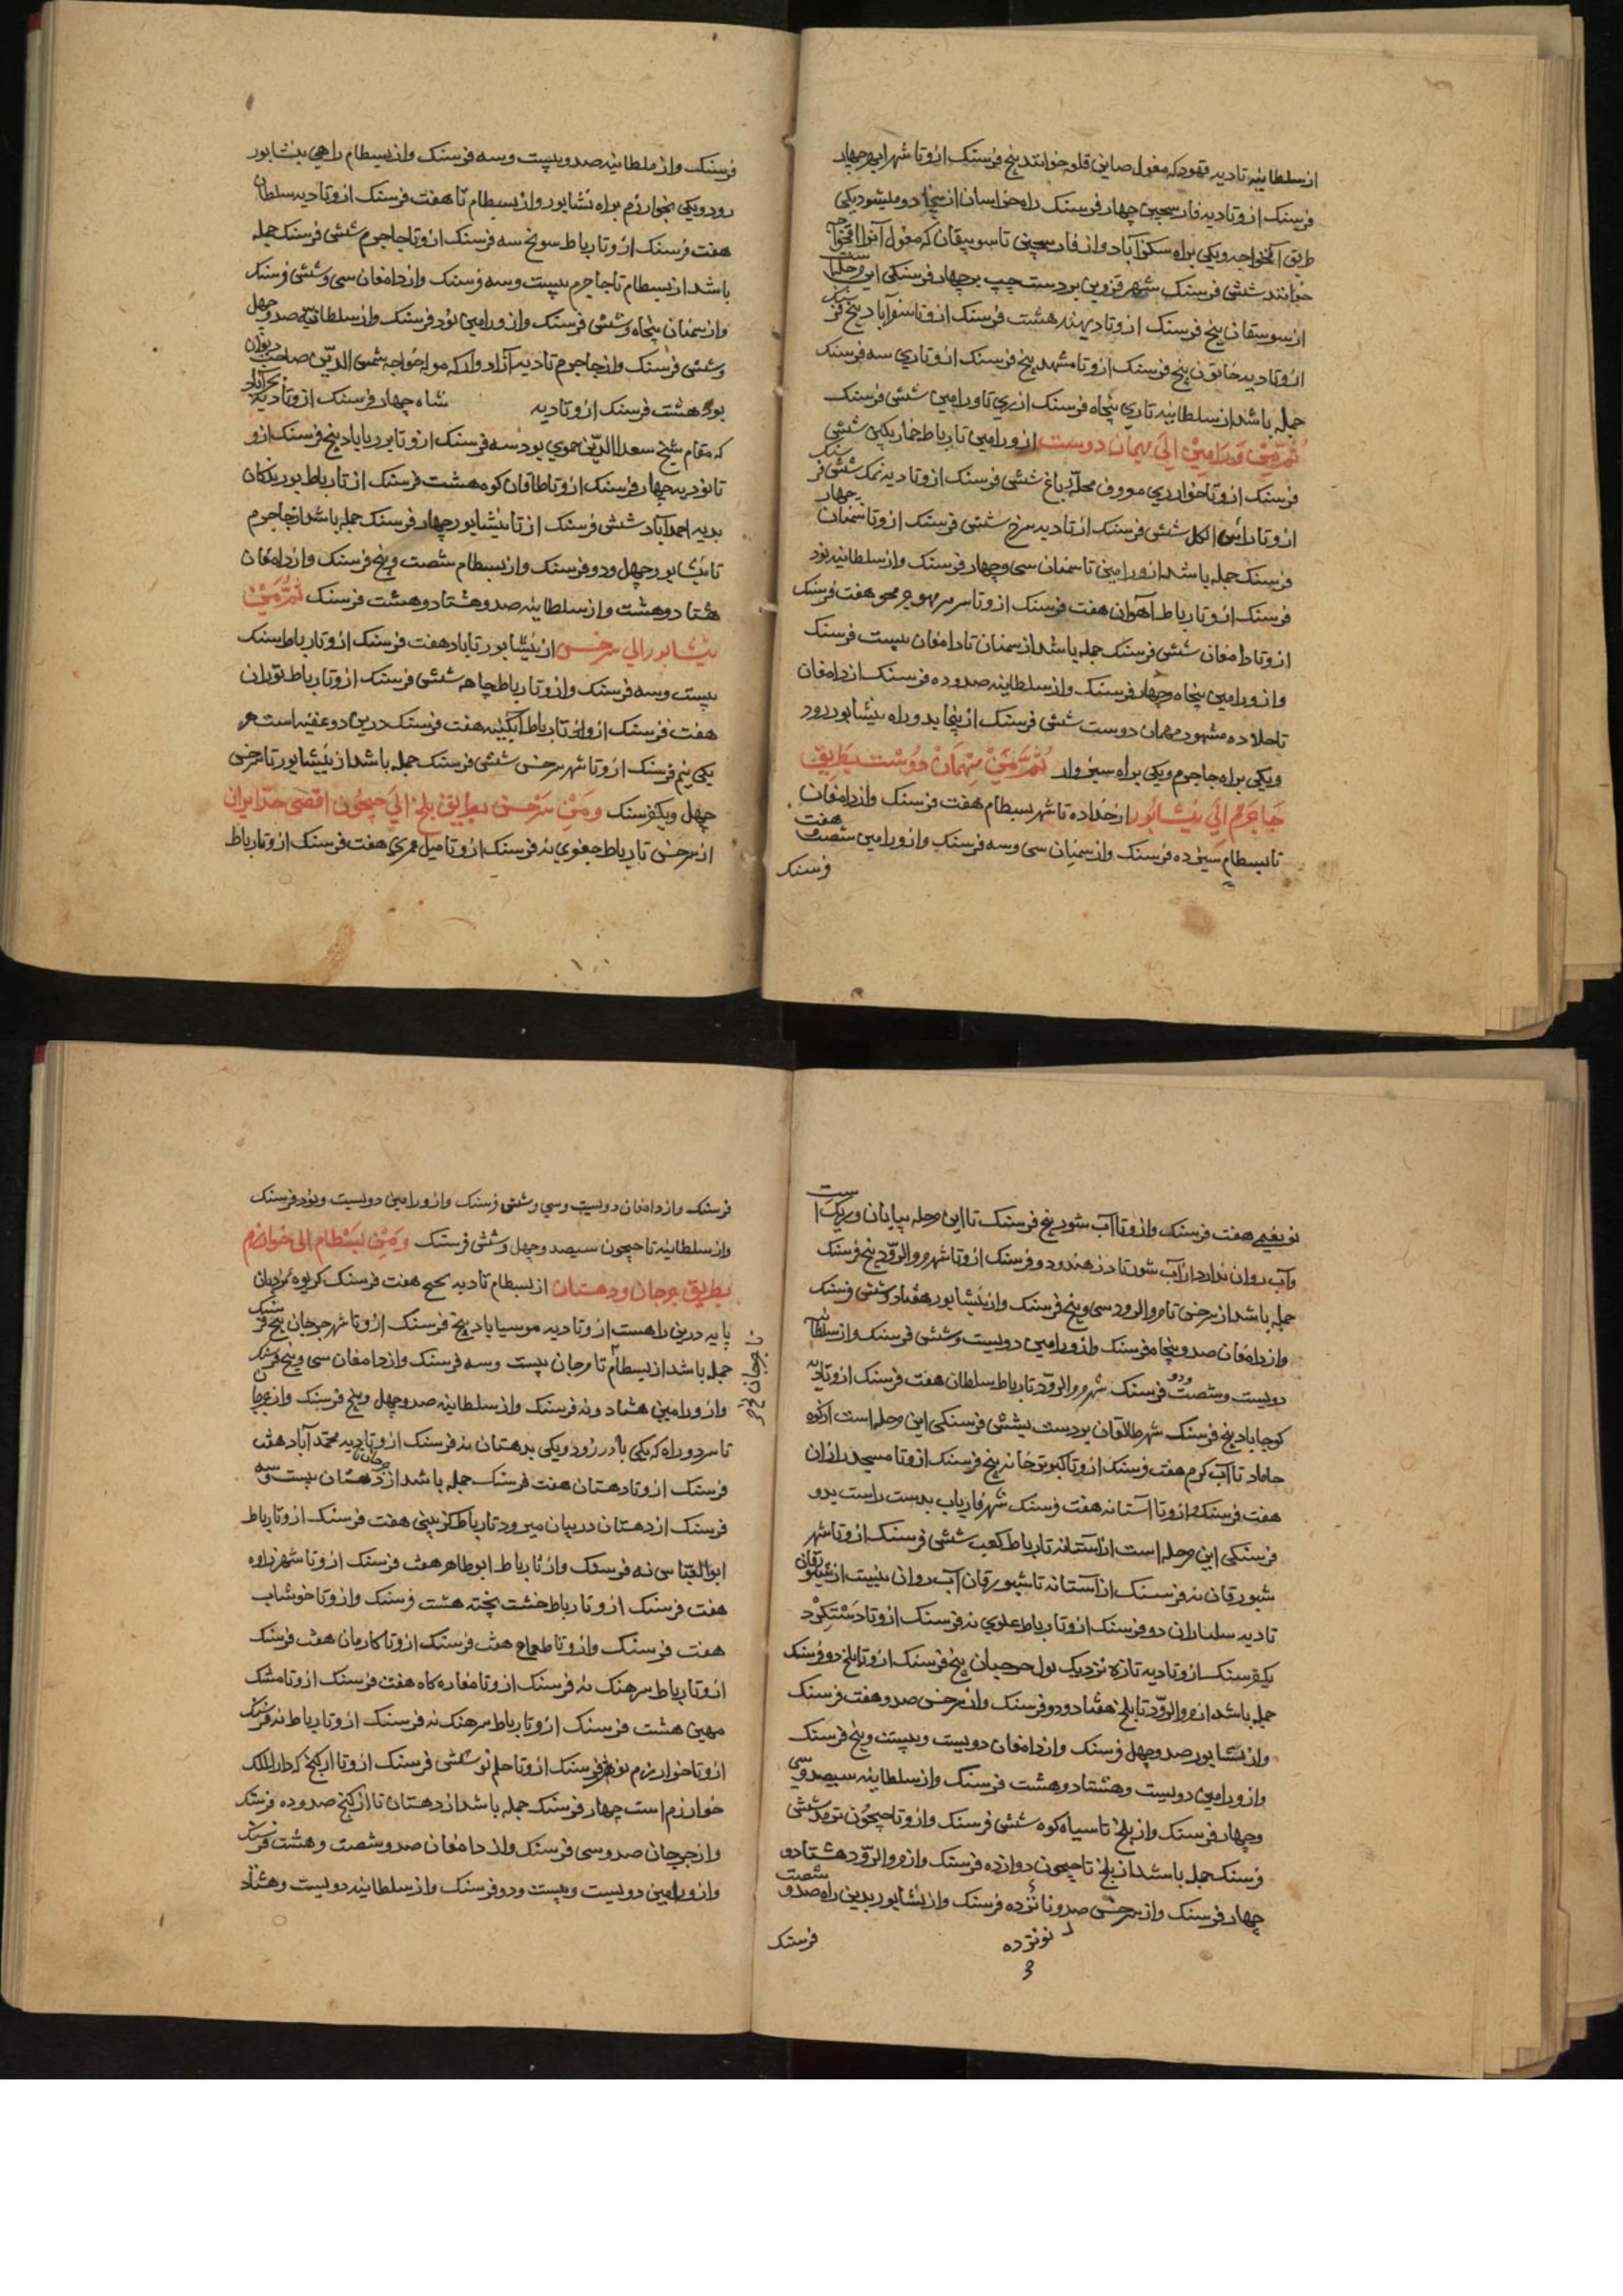 از سلطانیه تا دیه قهود که مغول صاین قلعه خوانند پنج فرسنک ازو تا شهر ابهر چهار
فرسنک ازو تا دیه فارسجین چهار فرسنک راه خراسان از ینجا دو میشود یکی
طریق آقخواجه و یکی براه سکزآباد و از فارسجین تا سومیقان که مغول آنرا اقخواجه
خوانند شش فرسنک شهر قزوین بر دست چپ بر چهار فرسنکی این مرحله است
از سوسقان پنج فرسنک ازو تا دیه هشت فرسنک ازو تا سنقرآباد پنج فرسنک
ازو تا دیه خاتون پنج فرسنک ازو تا مشهد پنج فرسنک ازو تا ری سه فرسنک
جمله باشد از سلطانیه تا ری پنجاه فرسنک از ری تا ورامین شش فرسنک
ثُمَّ مِنْ وَرَامِیْن اِلَی مهمان دوست از ورامین تا رباط خمارتکین شش
فرسنک ازو تا خوار ری معروف محله باغ شش فرسنک ازو تا دیه نمک شش فرسنک
ازو تا راس الکل شش فرسنک ازو تا دیه سرخ شش فرسنک ازو تا سمنان چهار
فرسنک جمله باشد از ورامین تا سمنان سی و چهار فرسنک و از سلطانیه نود
فرسنک ازو تا رباط آهوان هفت فرسنک ازو تا هفت فرسنک
ازو تا دامغان شش فرسنک جمله باشد از سمنان تا دامغان بیست فرسنک
و از ورامین پنجاه و چهار فرسنک و از سلطانیه صد و ده فرسنک از دامغان
تا حلاده مشهور مهمان دوست شش فرسنک از ینجا بدو راه نیشابور رود
و یکی براه جاجرم و یکی براه سبزوار ثُمَّ مِنْ مِهْمَان دُوْسْت بطَرِیق
جَاجَرْم اِلَی نیْشَابُور از حداده تا شهر بسطام هفت فرسنک و از دامغان
تا بسطام سیزده فرسنک و از سمنان سی و سه فرسنک و از ورامین شصت و هفت
فرسنک
فرسنک و از سلطانیه صد و بیست و سه فرسنک و از بسطام راهی بنشابور
رود و یکی بخوارزم براه نشابور و از بسطام تا هفت فرسنک ازو تا دیه سلطان
هفت فرسنک ازو تا رباط سونج سه فرسنک ازو تا جاجرم شش فرسنک جمله
باشد از بسطام تا جاجرم بیست و سه فرسنک و از دامغان سی و شش فرسنک
و از سمنان پنجاه و شش فرسنک و از ورامین نود فرسنک و از سلطانیه صد و چهل
و شش فرسنک و از جاجرم تا دیه آزادوار که مولد خواجه شمس الدین صاحب دیوان
بود هشت فرسنک ازو تا دیه شاه چهار فرسنک ازو تا دیه بحرآباد
که مقام شیخ سعد الدین حموی بود سه فرسنک ازو تا پنج فرسنک ازو
تا نوذ دیه چهار فرسنک ازو تا طاقان کوه هشت فرسنک ازو تا رباط بوریکان
بدیه احمدآباد شش فرسنک ازو تا نیشابور چهار فرسنک جمله باشد از جاجرم
تا نیشابور چهل و دو فرسنک و از بسطام شصت و پنج فرسنک و از دامغان
هشتاد و هشت و از سلطانیه صد و هشتاد و هشت فرسنک ثُمَّ مِنْ
نیشابور الی سرخس از نیشابور تا باد هفت فرسنک ازو تا رباط سنک
بیست و سه فرسنک و ازو تا رباط چاهه شش فرسنک ازو تا رباط توران
هفت فرسنک ازو تا رباط آبکینه هفت فرسنک درین دو عقبه است هر
یکی نیم فرسنک ازو تا شهر سرخس شش فرسنک جمله باشد از نیشابور تا سرخس
چهل و یکفرسنک وَ مِنْ سَرْخس بطریق بلخ اِلَی جیحُون اقصی حدّ ایران
از سرخس تا رباط جعفری نه فرسنک ازو تا میل عمری هفت فرسنک ازو تا رباط
هفت فرسنک و ازو تا آب شور پنج فرسنک تا این مرحله بیابان و ریک است
و آب روان ندارد از آب شور تا دزهندو دو فرسنک ازو تا شهر مرو الرّود پنج فرسنک
جمله باشد از سرخس تا مرو الرود سی و پنج فرسنک و از نیشابور هفتاد و شش فرسنک
و از دامغان صد و پنجاه فرسنک و از ورامین دویست و شش فرسنک و از سلطانیه
دویست و شصت و دو فرسنک شهر مرو الرّود تا رباط سلطان هفت فرسنک ازو تا دیه
کوجاباد پنج فرسنک شهر طالقان بر دست بشش فرسنکی این مرحله است ازکوه
حاماد تا آب کرم هفت فرسنک ازو تا کبوترخانه پنج فرسنک ازو تا مسجد رازان
هفت فرسنک و ازو تا آستانه هفت فرسنک شهر فاریاب بدست راست بدو
فرسنکی این مرحله است از آستانه تا رباط کعب شش فرسنک ازو تا شهر
شبورقان نه فرسنک از آستانه تا شبورقان آب روان نیست از شبورقان
تا دیه سلماران دو فرسنک ازو تا رباط علوی نه فرسنک ازو تا دَسْتکِرْد
یکفرسنک ازو تا دیه تازه نزدیک پول پنج فرسنک ازو تا بلخ دو فرسنک
جمله باشد از مرو الرّود تا بلخ هفتاد و دو فرسنک و از سرخس صد و هفت فرسنک
و از نشابور صد و چهل فرسنک و از دامغان دویست و بیست و پنج فرسنک
و از ورامین دویست و هشتاد و هشت فرسنک و از سلطانیه سیصد و سی
و چهار فرسنک و از بلخ تا سیاه کوه شش فرسنک و ازو تا جیحُون ترمد شش
فرسنک جمله باشد از بلخ تا جیحون دوازده فرسنک و از مرو الرّود هشتاد و
چهار فرسنک و از سرخس صد و نانزده فرسنک و از نشابور بدین راه صد و شصت
نونزده
فرسنک
فرسنک و از دامغان دویست و سی و شش فرسنک و از ورامین دویست و نود فرسنک
و از سلطانیه تا جیحون سیصد و چهل و شش فرسنک وَ مِنْ بسْطام الی خوارزم
بطریق جرجان و دهستان از بسطام تا دیه هفت فرسنک کریوه نردبان
پایه درین راهست ازو تا دیه موسیاباد پنج فرسنک ازو تا شهر جرجان پنج فرسنک
جمله باشد از بسطام تا جرجان بیست و سه فرسنک و از دامغان سی و پنج فرسنک
و از ورامین هشتاد و نه فرسنک و از سلطانیه صد و چهل و پنج فرسنک و از جرجان
تا سر دو راه که یکی رود و یکی بدهستان نه فرسنک ازو تا دیه محمّد آباد هفت
فرسنک ازو تا دهستان هفت فرسنک جمله باشد از جرجان تا دهستان بیست و سه
فرسنک از دهستان در بیابان میرود تا رباط کزبینی هفت فرسنک ازو تا رباط
ابو العبّاسی نه فرسنک و ازو تا رباط ابو طاهر هفت فرسنک ازو تا شهر فراوه
هفت فرسنک ازو تا رباط خشت پخته هشت فرسنک و ازو تا خوشاب
هفت فرسنک و ازو تا طعماج هفت فرسنک ازو تا کارمان هفت فرسنک
ازو تا رباط سرهنک نه فرسنک ازو تا مغاره کاه هفت فرسنک ازو تا مشک
مهین هشت فرسنک ازو تا رباط سرهنک نه فرسنک ازو تا رباط نه فرسنک
ازو تا خوارزم نو فرسنک ازو تا حلم نو شش فرسنک ازو تا ارکنج که دار الملک
خوارزم است چهار فرسنک جمله باشد از دهستان تا ارکنج صد و ده فرسنک
و از جرجان صد و سی فرسنک و از دامغان صد و شصت و هشت فرسنک
و از ورامین دویست و بیست و دو فرسنک و از سلطانیه دویست و هشتاد